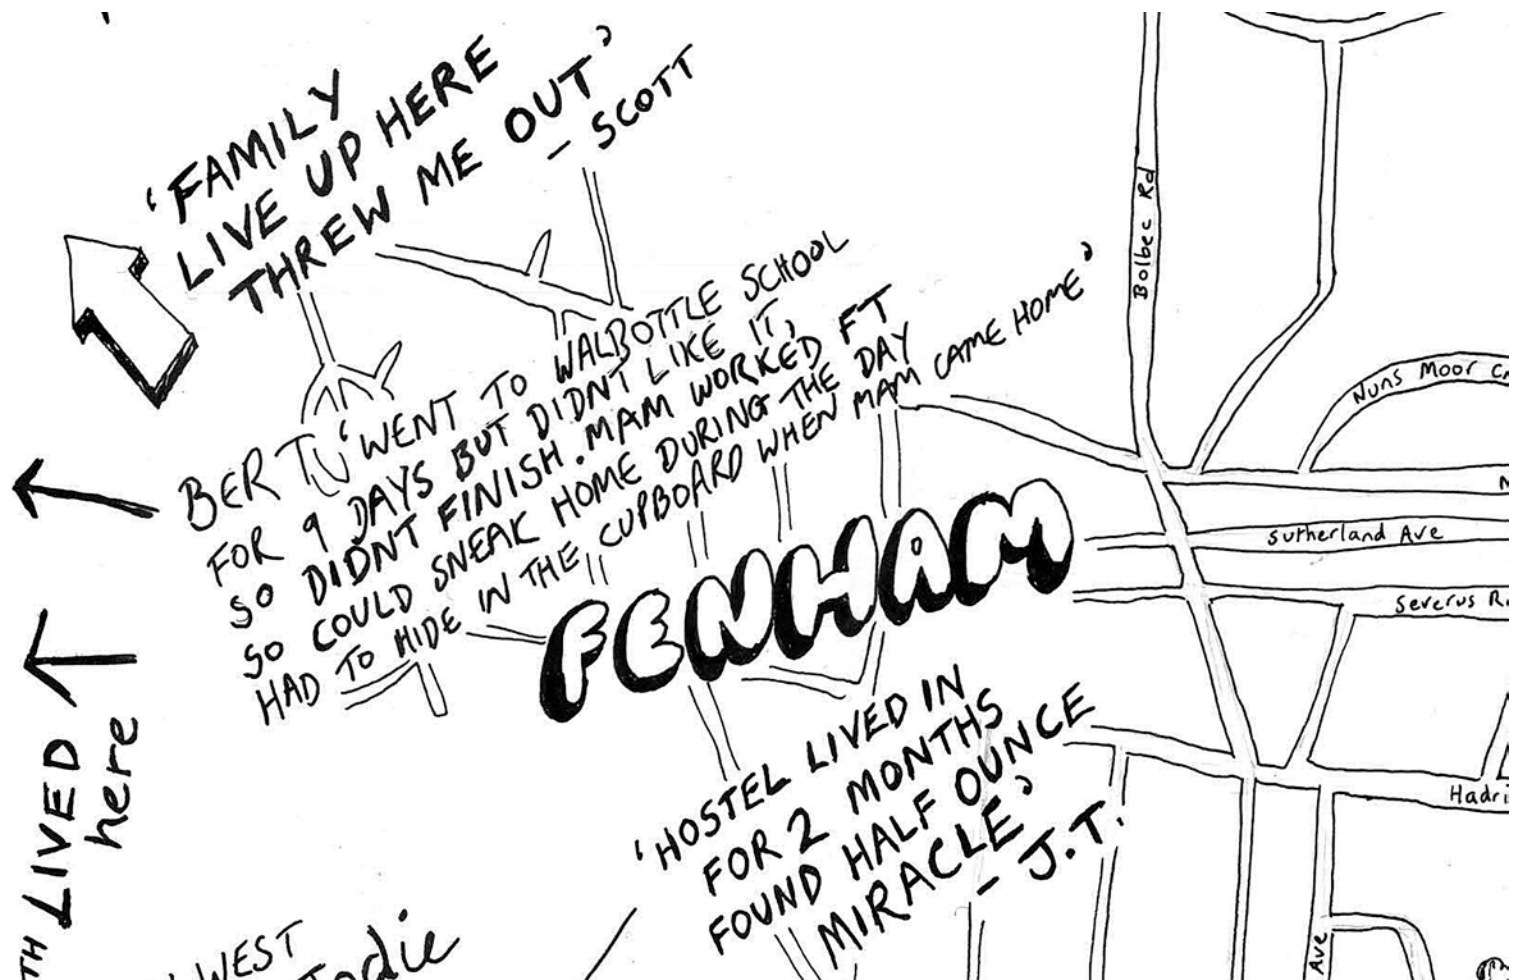 'FAMILY
LIVE UP HERE
THREW ME OUT'
- SCOTT
BERT 'WENT TO WALBOTTLE SCHOOL
FOR 9 DAYS BUT DIDNT LIKE IT,
SO DIDNT FINISH. MAM WORKED FT
SO COULD SNEAK HOME DURING THE DAY
HAD TO HIDE IN THE CUPBOARD WHEN MAM CAME HOME'
FENHAM
'HOSTEL LIVED IN
FOR 2 MONTHS
FOUND HALF OUNCE
MIRACLE'
- J.T.
Bolbec Rd
Nuns Moor Cr
Sutherland Ave
Severus R
Hadri
Ave
LIVED
here
WEST
Jodie